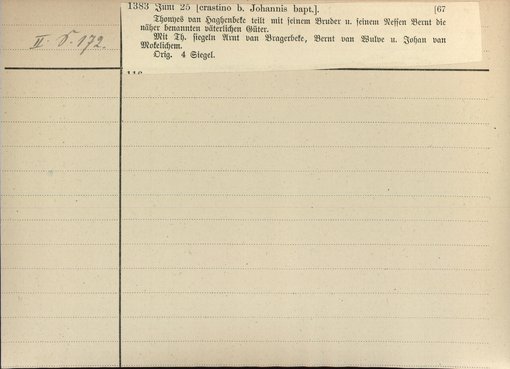 1383 Juni 25 [crastino b. Johannis bapt.]. [67
Thomes van Haghenbeke teilt mit seinem Bruder u. seinem Neffen Bernt die
näher benannten väterlichen Güter.
Mit Th. siegeln Arnt van Bragerbeke, Bernt van Wulve u. Johan van
Mokelichem.
Orig. 4 Siegel.
II. S. 172.